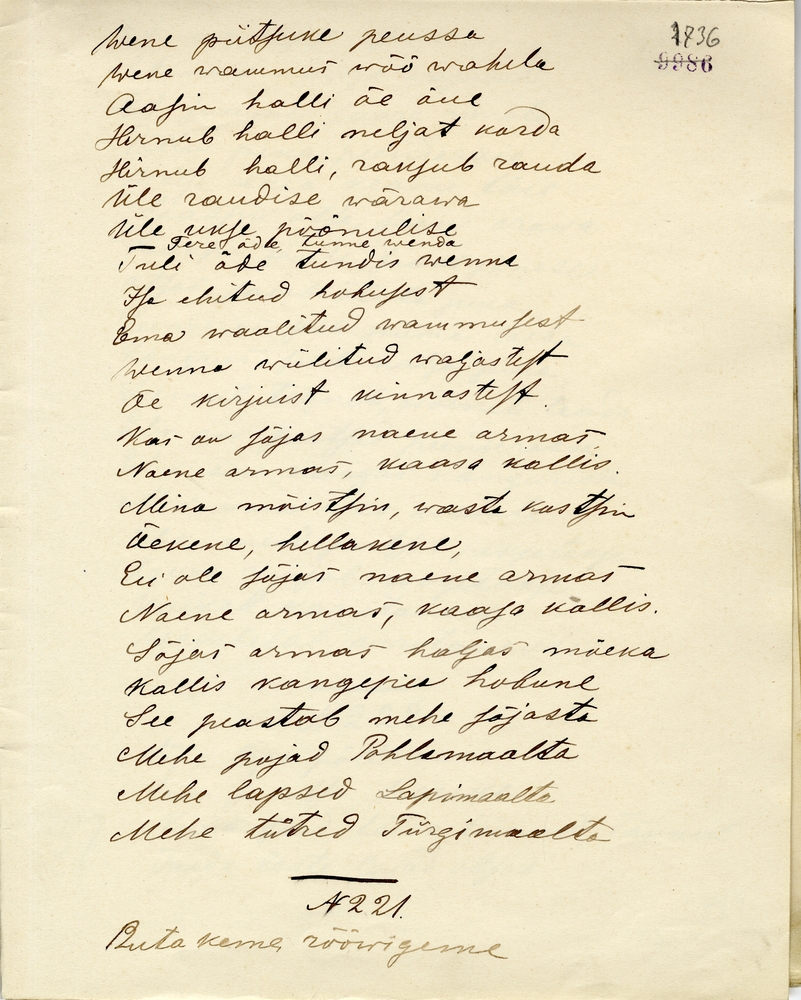 1736
9986
Wene piitsuke peussa
Wene wammus wöö wahela
Aasin halli õe õue
Hirnub halli neljat korda
Hirnub halli, raksub rauda
Üle raudise wärawa
Üle ukse põõnulise
Tere õde, tunne wenda
Tuli õde tundis wenna
Isa ehitud hobusest
Ema waalitud wammusest
Wenna wiilitud waljastest
Õe kirjuist kinnastest.
Kas on sõjas naene armas
Naene armas, kaasa kallis.
Mina mõistsin, wasta kostsin
Õekene, hellakene,
Ei ole sõjas naene armas
Naene armas, kaasa kallis.
Sõjas armas haljas mõeka
Kallis kangepea hobune
See peastab mehe sõjasta
Mehe pojad Pohlamaalta
Mehe lapsed Lapimaalta
Mehe tütred Türgimaalta
N 221.
Ruta keme, rööwigeme